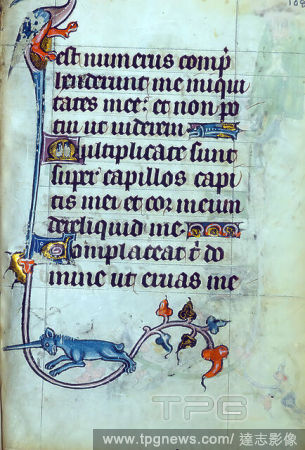 168
est numerus comp̄
henderunt me iniqui
tates mee: et non po
tui ut uiderem
Multiplicate sunt
super capillos capi
tis mei et cor meum
dereliquid me
Complaceat t̄ do
mine ut eruas me
TPG
www.tpgnews.com/達志影像